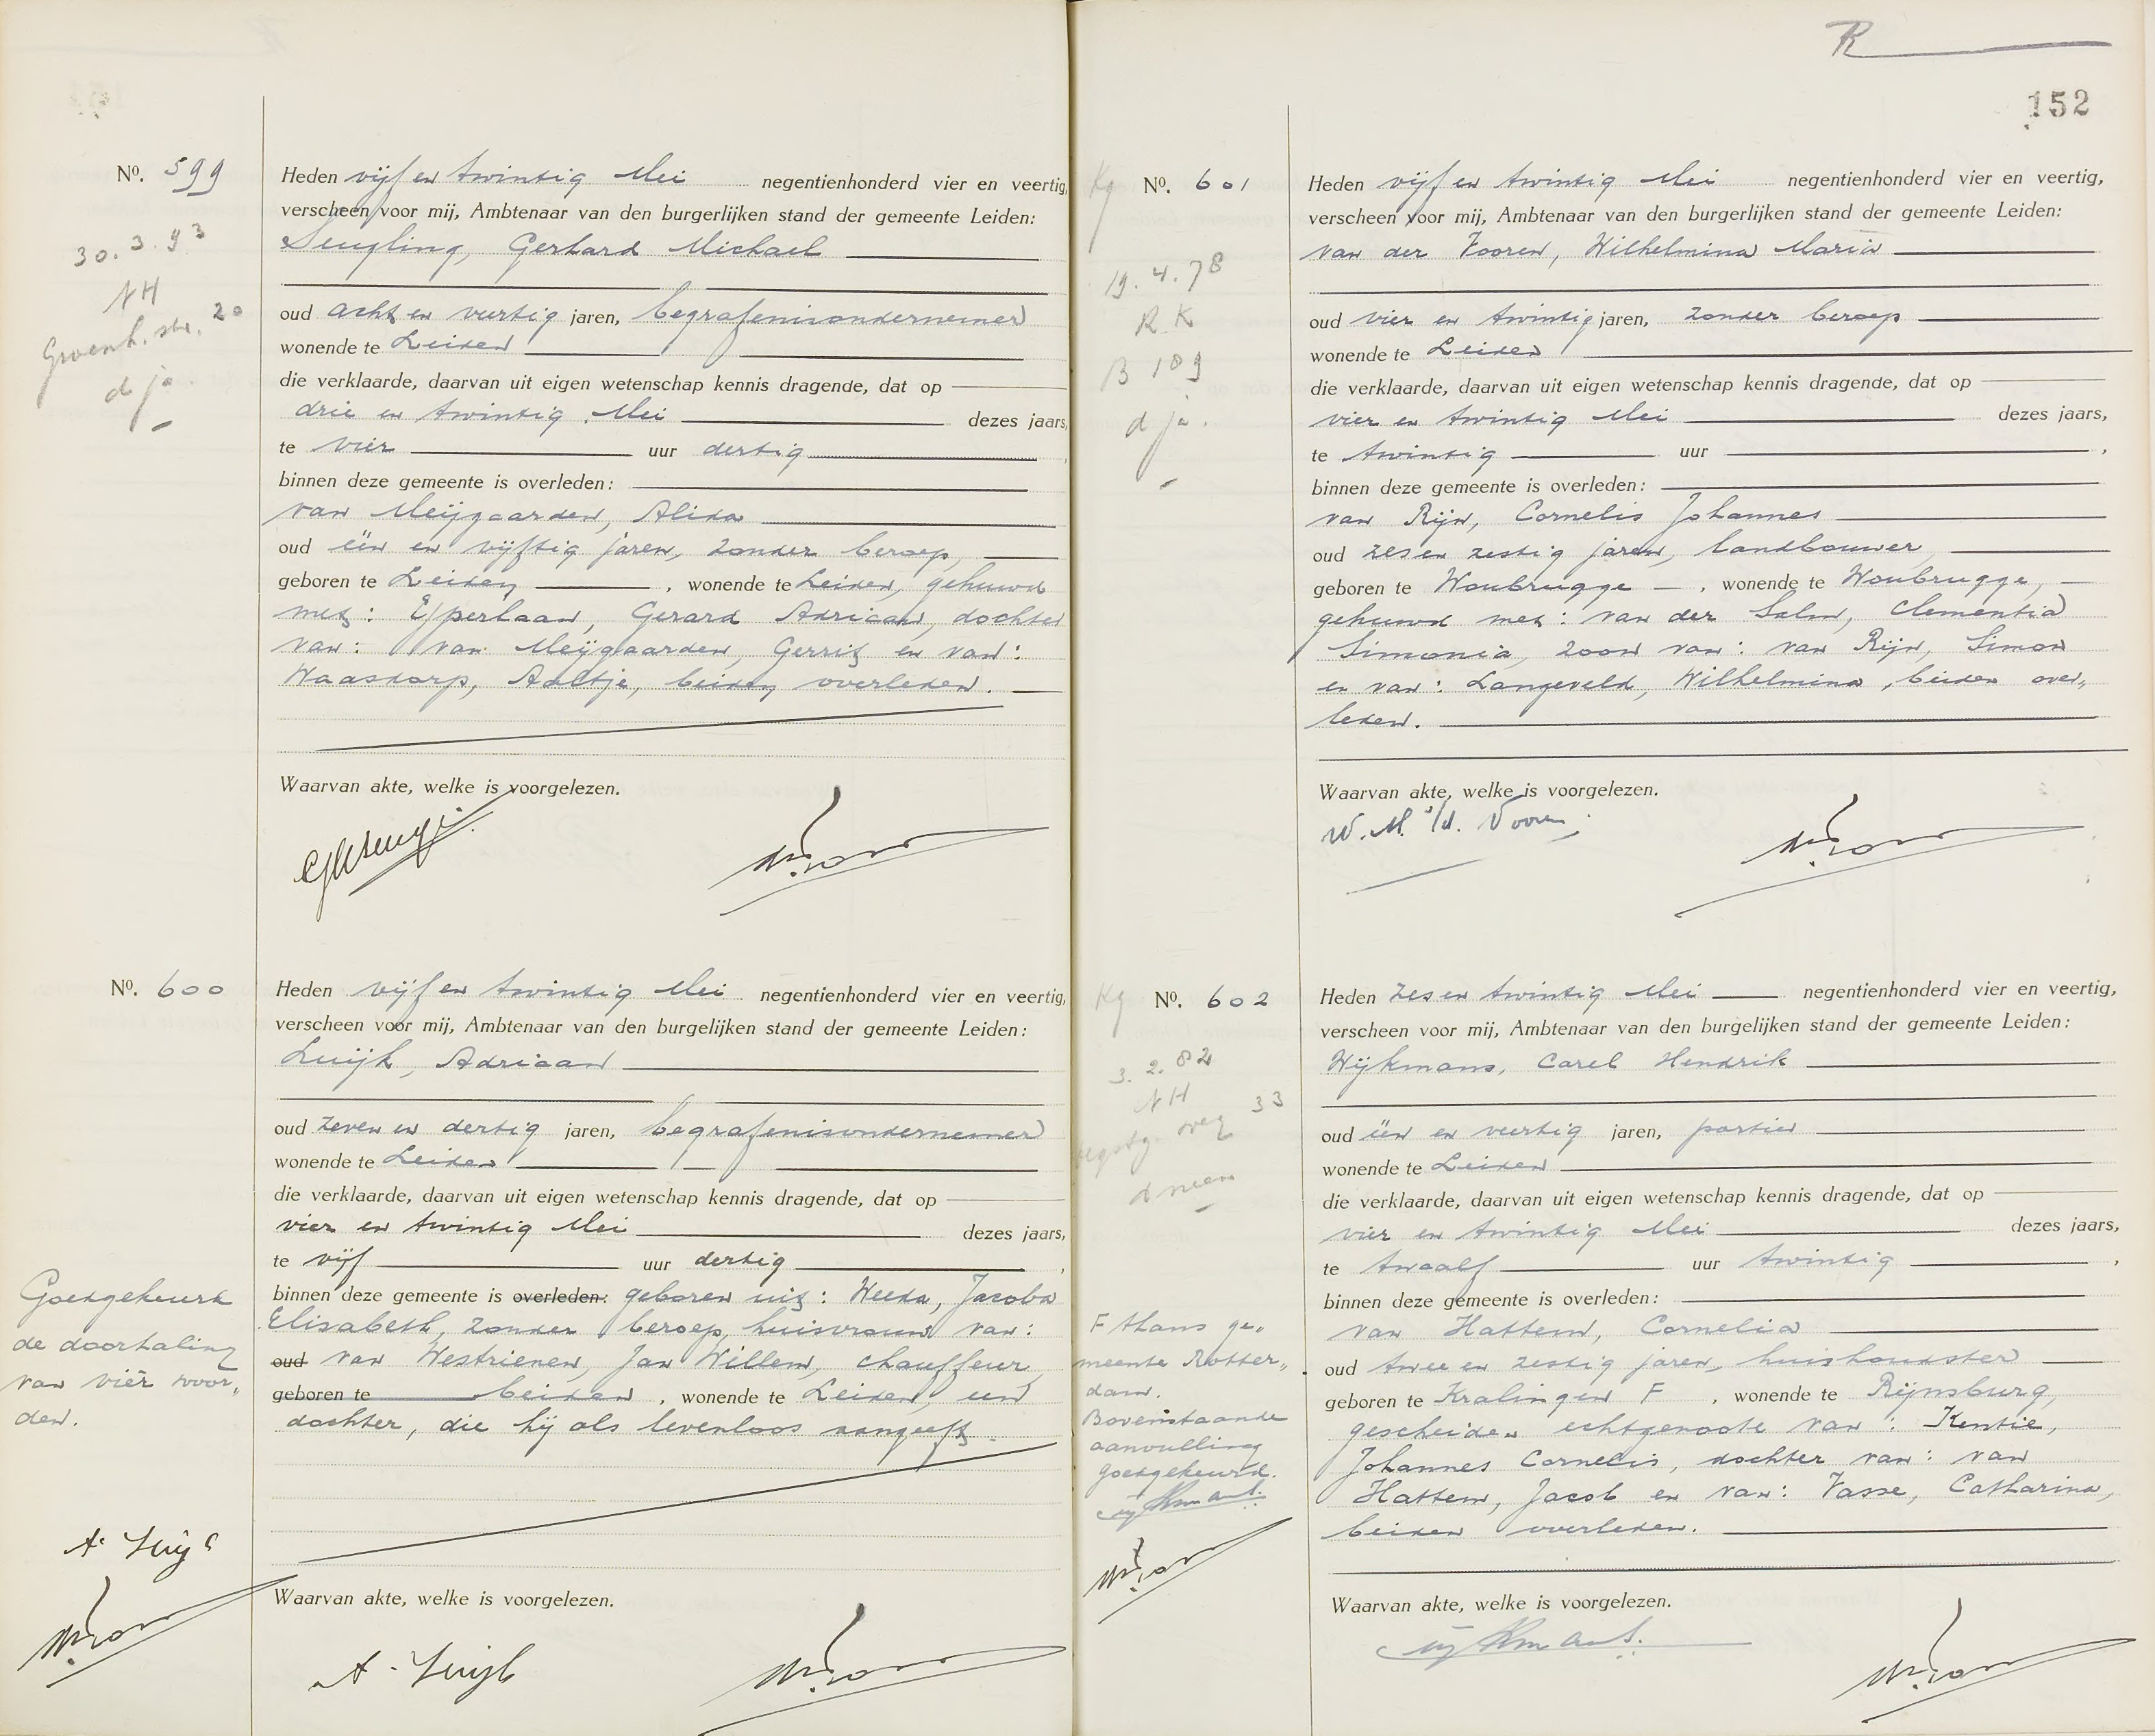 Nº. 599
30.3.93
NH
Groenh. str. 20
d ja.
Heden vijf en twintig Mei negentienhonderd vier en veertig,
verscheen voor mij, Ambtenaar van den burgerlijken stand der gemeente Leiden:
Sengling, Gerhard Michael
oud acht en veertig jaren, begrafenisondernemer
wonende te Leiden
die verklaarde, daarvan uit eigen wetenschap kennis dragende, dat op
drie en twintig Mei dezes jaars,
te vier uur dertig
binnen deze gemeente is overleden:
van Meijgaarden, Alida
oud één en vijftig jaren, zonder beroep,
geboren te Leiden, wonende te Leiden, gehuwd
met: Eijperlaan, Gerard Adriaan, dochter
van: van Meijgaarden, Gerrit en van:
Waasdorp, Aaltje, beiden overleden.
Waarvan akte, welke is voorgelezen.
Nº. 600
Heden vijf en twintig Mei negentienhonderd vier en veertig,
verscheen voor mij, Ambtenaar van den burgelijken stand der gemeente Leiden:
Luijk, Adriaan
oud zeven en dertig jaren, begrafenisondernemer
wonende te Leiden
die verklaarde, daarvan uit eigen wetenschap kennis dragende, dat op
vier en twintig Mei dezes jaars,
te vijf uur dertig
binnen deze gemeente is overleden: geboren uit: Weeda, Jacoba
Elisabeth, zonder beroep, huisvrouw van:
oud van Westrienen, Jan Willem, chauffeur,
geboren te beiden, wonende te Leiden, een
dochter, die hij als levenloos aangeeft.
Goedgekeurd
de doorhaling
van vier woor„
den.
A. Luijk
Waarvan akte, welke is voorgelezen.
A. Luijk
R
152
Kg
Nº. 601
19.4.78
RK
B 189
d ja.
Heden vijf en twintig Mei negentienhonderd vier en veertig,
verscheen voor mij, Ambtenaar van den burgerlijken stand der gemeente Leiden:
van der Vooren, Wilhelmina Maria
oud vier en twintig jaren, zonder beroep
wonende te Leiden
die verklaarde, daarvan uit eigen wetenschap kennis dragende, dat op
vier en twintig Mei dezes jaars,
te twintig uur,
binnen deze gemeente is overleden:
van Rijn, Cornelis Johannes
oud zes en zestig jaren, landbouwer,
geboren te Woubrugge, wonende te Woubrugge,
gehuwd met: van der Salm, Clementia
Simonia, zoon van: van Rijn, Simon
en van: Langeveld, Wilhelmina, beiden over„
leden.
Waarvan akte, welke is voorgelezen.
W. M. v/d. Vooren
Kg
Nº. 602
3.2.82
NH
33
d neen
Heden zes en twintig Mei negentienhonderd vier en veertig,
verscheen voor mij, Ambtenaar van den burgelijken stand der gemeente Leiden:
Wijkmans, Carel Hendrik
oud één en veertig jaren, portier
wonende te Leiden
die verklaarde, daarvan uit eigen wetenschap kennis dragende, dat op
vier en twintig Mei dezes jaars,
te twaalf uur twintig,
binnen deze gemeente is overleden:
van Hattem, Cornelia
oud twee en zestig jaren, huishoudster
geboren te Kralingen F, wonende te Rijnsburg,
gescheiden echtgenoote van: Kentie,
Johannes Cornelis, dochter van: van
Hattem, Jacob en van: Vasse, Catharina,
beiden overleden.
F thans ge„
meente Rotter„
dam.
Bovenstaande
aanvulling
goedgekeurd.
Wijkmans.
Waarvan akte, welke is voorgelezen.
Wijkmans.